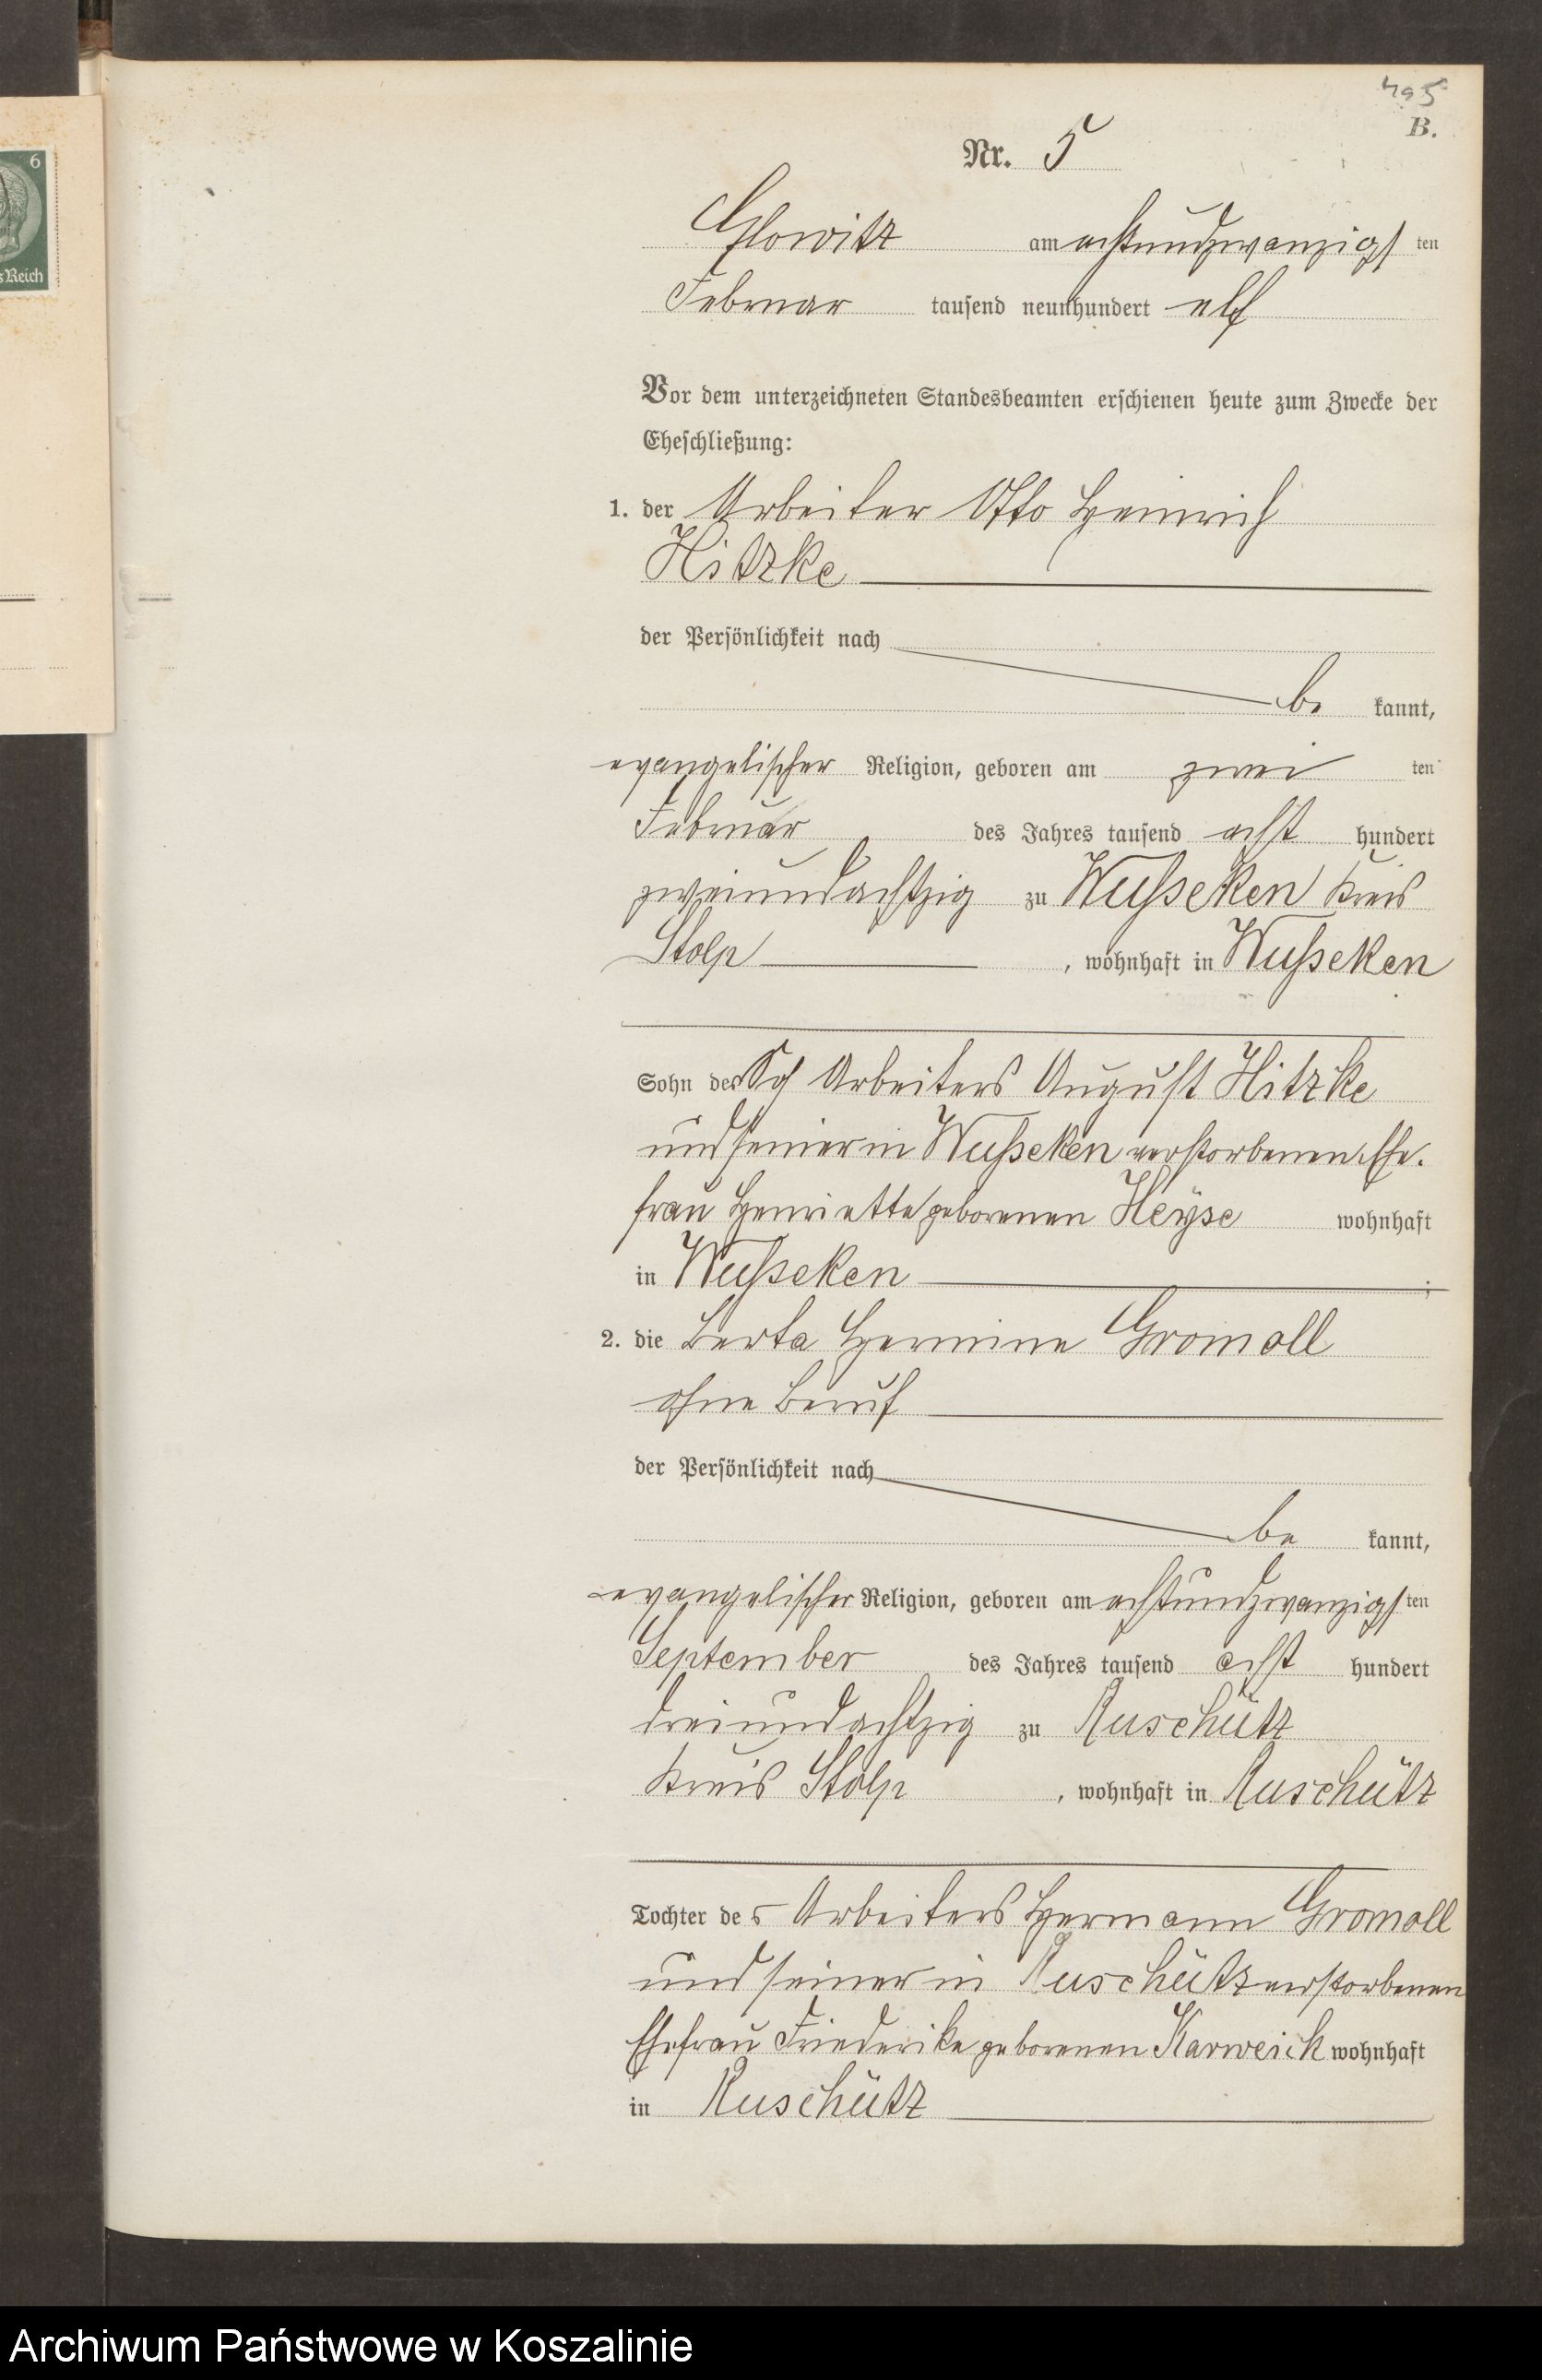 495
B.
Nr. 5
Glowitz am achtundzwanzigsten
Februar tausend neunhundert elf
Vor dem unterzeichneten Standesbeamten erschienen heute zum Zwecke der
Eheschließung:
1. der Arbeiter Otto Heinrich
Hitzke
der Persönlichkeit nach
be kannt,
evangelischer Religion, geboren am zwei ten
Februar des Jahres tausend acht hundert
zweiundachtzig zu Wusseken Kreis
Stolp, wohnhaft in Wusseken
Sohn des Arbeiters August Hitzke
und seiner in Wusseken verstorbenen Ehe-
frau Henriette geborenen Heyse wohnhaft
in Wusseken;
2. die Berta Hermine Gromoll
ohne Beruf
der Persönlichkeit nach
be kannt,
evangelischer Religion, geboren am achtundzwanzigsten
September des Jahres tausend acht hundert
dreiundachtzig zu Ruschütz
Kreis Stolp, wohnhaft in Ruschütz
Tochter des Arbeiters Hermann Gromoll
und seiner in Ruschütz verstorbenen
Ehefrau Friederike geborenen Karweick wohnhaft
in Ruschütz
6
s Reich
Archiwum Państwowe w Koszalinie